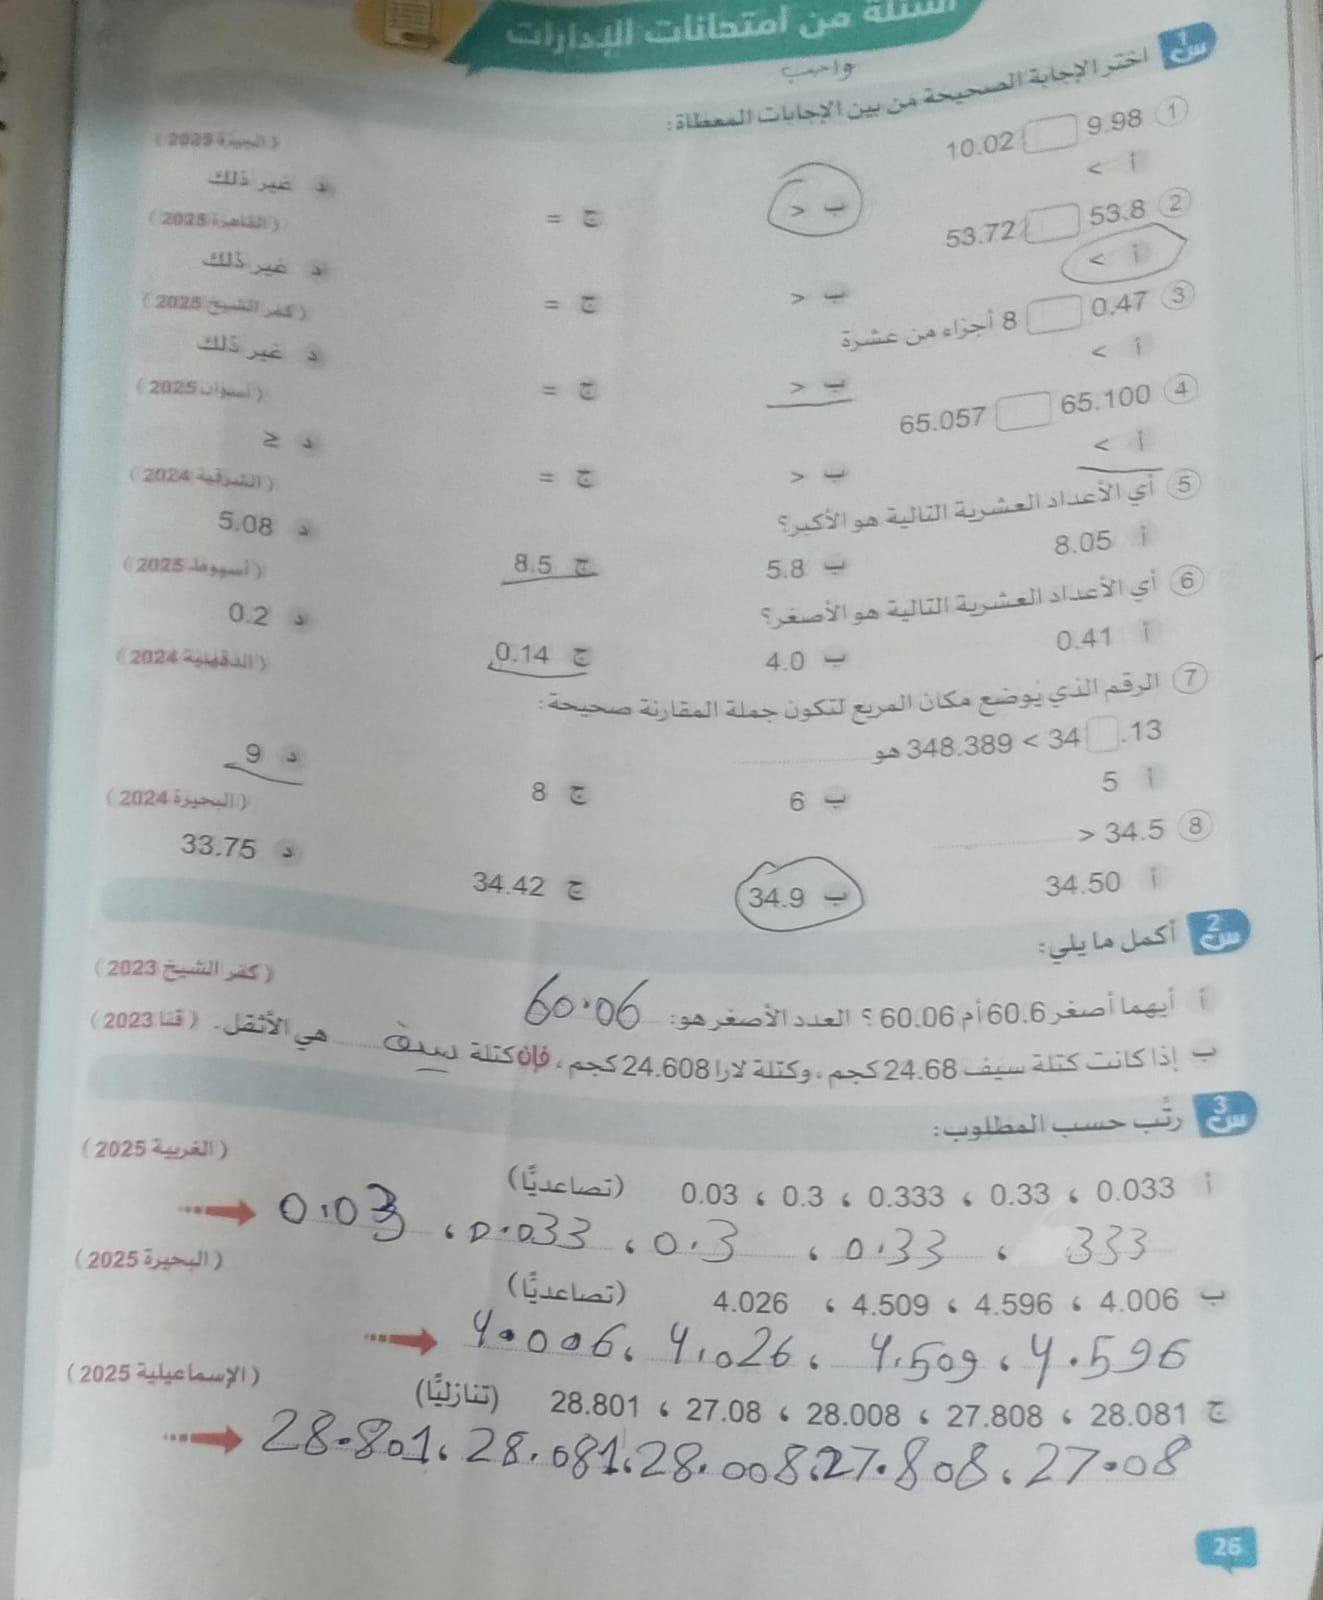 أسئلة من امتحانات الإدارات
واجب
س1 اختر الإجابة الصحيحة من بين الإجابات المعطاة:
1 9.98 10.02 (الجيزة 2025)
أ > ب < ج = د غير ذلك
2 53.8 53.72 (القاهرة 2025)
أ > ب < ج = د غير ذلك
3 0.47 8 أجزاء من عشرة (كفر الشيخ 2025)
أ > ب < ج = د غير ذلك
4 65.100 65.057 (أسوان 2025)
أ > ب < ج = د ≤
5 أي الأعداد العشرية التالية هو الأكبر؟ (الشرقية 2024)
أ 8.05 ب 5.8 ج 8.5 د 5.08
6 أي الأعداد العشرية التالية هو الأصغر؟ (أسيوط 2025)
أ 0.41 ب 4.0 ج 0.14 د 0.2
7 الرقم الذي يُوضع مكان المربع لتكون جملة المقارنة صحيحة: (الدقهلية 2024)
348.389 < 34 .13 هو
أ 5 ب 6 ج 8 د 9
8 > 34.5 (البحيرة 2024)
أ 34.50 ب 34.9 ج 34.42 د 33.75
س2 أكمل ما يلي:
أ أيهما أصغر 60.6 أم 60.06 ؟ العدد الأصغر هو: 60.06 (كفر الشيخ 2023)
ب إذا كانت كتلة سيف 24.68 كجم، وكتلة لارا 24.608 كجم، فإن كتلة سيف هي الأثقل. (قنا 2023)
س3 رتّب حسب المطلوب:
أ 0.033 ، 0.33 ، 0.333 ، 0.3 ، 0.03 (تصاعديًّا) (الغربية 2025)
0.03 ، 0.033 ، 0.3 ، 0.33 ، 333
ب 4.006 ، 4.596 ، 4.509 ، 4.026 (تصاعديًّا) (البحيرة 2025)
4.006 ، 4.026 ، 4.509 ، 4.596
ج 28.081 ، 27.808 ، 28.008 ، 27.08 ، 28.801 (تنازليًّا) (الإسماعيلية 2025)
28.801 ، 28.081 ، 28.008 ، 27.808 ، 27.08
26